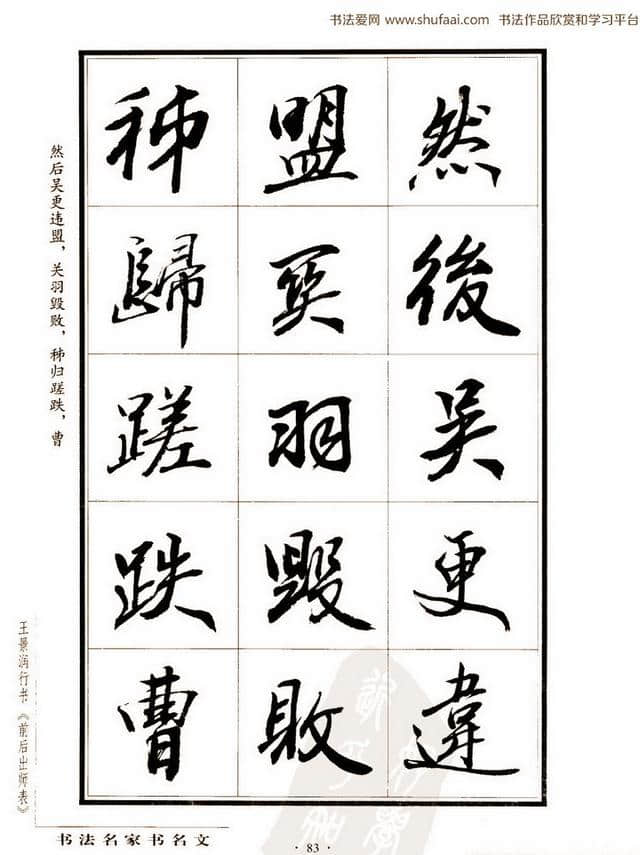 书法爱网 www.shufaai.com 书法作品欣赏和学习平台
然後吴更違
盟关羽毁敗
秭歸蹉跌曹
然后吴更违盟，关羽毁败，秭归蹉跌，曹
王景润行书《前后出师表》
书法名家书名文
·83·